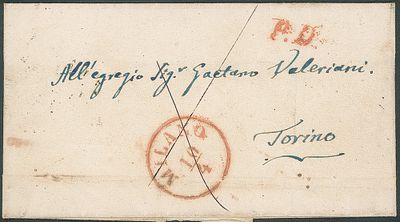 P.D.
All'egregio Sig.r Gaetano Valeriani.
MILANO
10
4
Torino